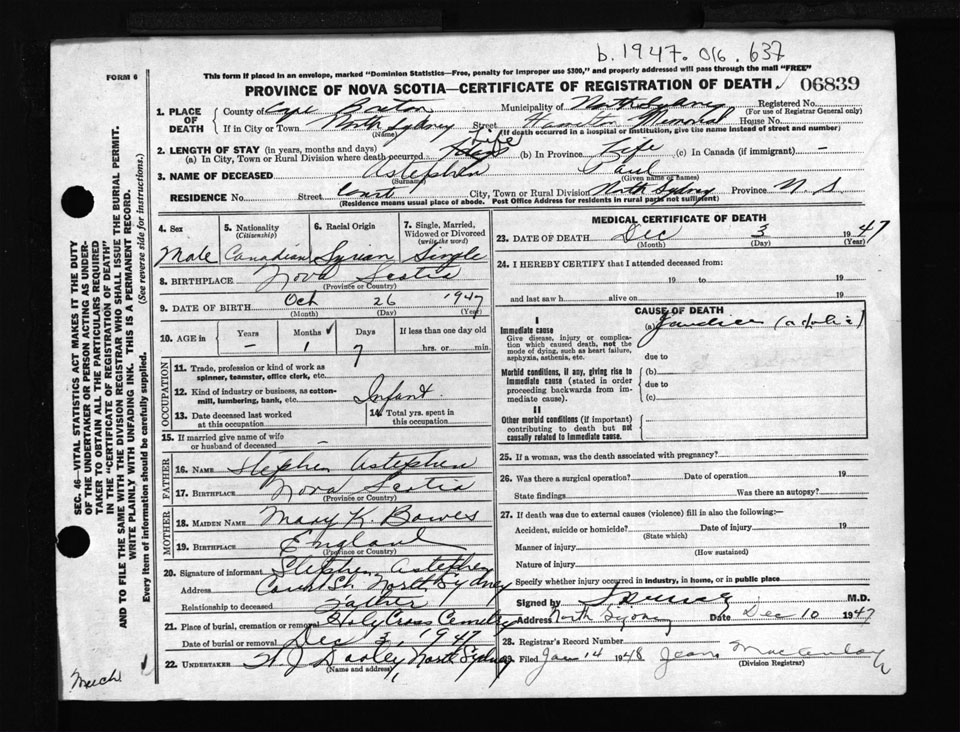 b. 1947. 016. 637
FORM 6
This form if placed in an envelope, marked "Dominion Statistics—Free, penalty for improper use $300," and properly addressed will pass through the mail "FREE"
PROVINCE OF NOVA SCOTIA—CERTIFICATE OF REGISTRATION OF DEATH 06839
1. PLACE OF DEATH County of Cape Breton Municipality of North Sydney Registered No.
(For use of Registrar General only)
If in City or Town North Sydney Street Hamilton Memorial House No.
(Name) (If death occurred in a hospital or institution, give the name instead of street and number)
2. LENGTH OF STAY (in years, months and days)
(a) In City, Town or Rural Division where death occurred Life (b) In Province Life (c) In Canada (if immigrant) -
3. NAME OF DECEASED Astephen Paul
(Surname) (Given name or names)
RESIDENCE No. Street Court City, Town or Rural Division North Sydney Province N. S
(Residence means usual place of abode. Post Office Address for residents in rural parts not sufficient)
4. Sex 5. Nationality (Citizenship) 6. Racial Origin 7. Single, Married, Widowed or Divorced (write the word)
Male Canadian Syrian Single
8. BIRTHPLACE Nova Scotia
(Province or Country)
9. DATE OF BIRTH Oct 26 1947
(Month) (Day) (Year)
10. AGE in Years Months Days If less than one day old
- 1 7 hrs. or min.
OCCUPATION
11. Trade, profession or kind of work as spinner, teamster, office clerk, etc.
12. Kind of industry or business, as cotton-mill, lumbering, bank, etc. Infant
13. Date deceased last worked at this occupation 14. Total yrs. spent in this occupation
15. If married give name of wife or husband of deceased -
FATHER
16. NAME Stephen Astephen
17. BIRTHPLACE Nova Scotia
(Province or Country)
MOTHER
18. MAIDEN NAME Mary K. Bowes
19. BIRTHPLACE England
(Province or Country)
20. Signature of informant Stephen Astephen
Address Court St. North Sydney
Relationship to deceased Father
21. Place of burial, cremation or removal Holy Cross Cemetery
Date of burial or removal Dec 3, 1947
22. UNDERTAKER W. J. Dooley, North Sydney
(Name and address)
MEDICAL CERTIFICATE OF DEATH
23. DATE OF DEATH Dec 3 1947
(Month) (Day) (Year)
24. I HEREBY CERTIFY that I attended deceased from:
19 to 19
and last saw h alive on 19
CAUSE OF DEATH
I
Immediate cause (a) Jaundice
Give disease, injury or complication which caused death, not the mode of dying, such as heart failure, asphyxia, asthenia, etc.
due to
Morbid conditions, if any, giving rise to immediate cause (stated in order proceeding backwards from immediate cause). (b)
due to
(c)
II
Other morbid conditions (if important) contributing to death but not causally related to immediate cause.
25. If a woman, was the death associated with pregnancy?
26. Was there a surgical operation? Date of operation 19
State findings Was there an autopsy?
27. If death was due to external causes (violence) fill in also the following:—
Accident, suicide or homicide? Date of injury 19
(State which)
Manner of injury
(How sustained)
Nature of injury
Specify whether injury occurred in industry, in home, or in public place
Signed by M.D.
Address North Sydney Date Dec 10 1947
28. Registrar's Record Number
29. Filed Jan 14 1948 Jean
(Division Registrar)
SEC. 46—VITAL STATISTICS ACT MAKES IT THE DUTY
OF THE UNDERTAKER OR PERSON ACTING AS UNDER-
TAKER TO OBTAIN ALL THE PARTICULARS REQUIRED
IN THE "CERTIFICATE OF REGISTRATION OF DEATH"
AND TO FILE THE SAME WITH THE DIVISION REGISTRAR WHO SHALL ISSUE THE BURIAL PERMIT.
WRITE PLAINLY WITH UNFADING INK. THIS IS A PERMANENT RECORD.
Every item of information should be carefully supplied. (See reverse side for instructions.)